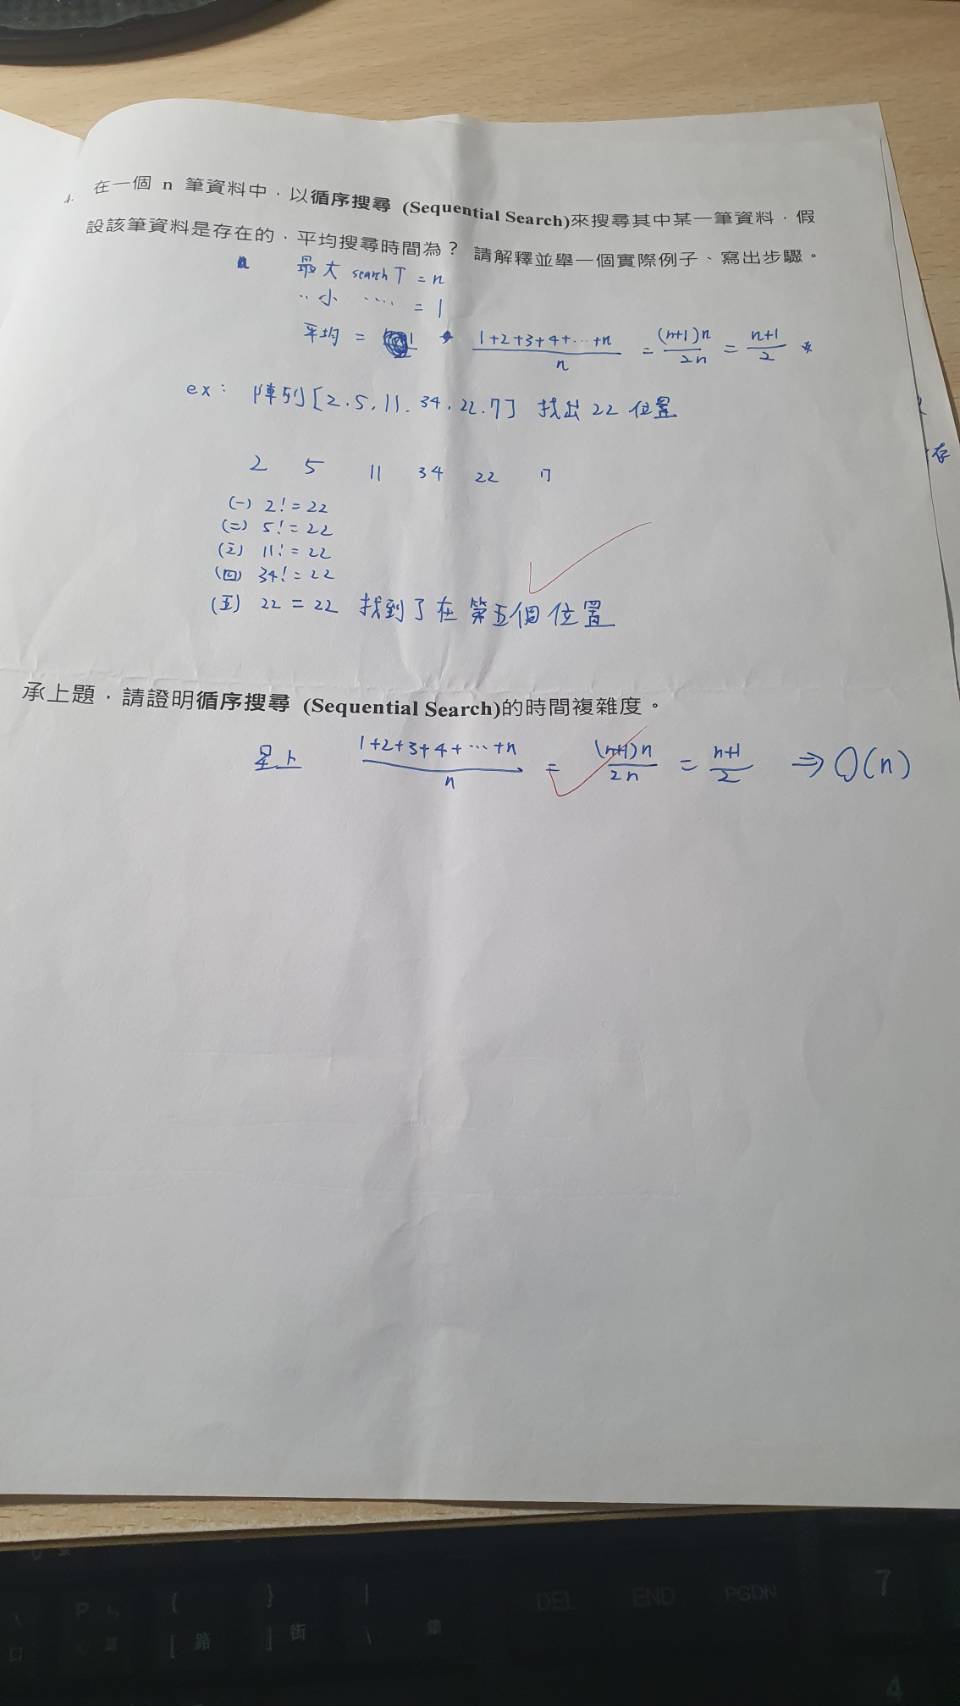 在一個 n 筆資料中，以循序搜尋 (Sequential Search)來搜尋其中某一筆資料，假
設該筆資料是存在的，平均搜尋時間為？ 請解釋並舉一個實際例子、寫出步驟。
最大 search T = n
‥小 ‥‥ = 1
平均 = 1+2+3+4+…+n / n = (n+1)n / 2n = n+1 / 2
ex： 陣列[2.5.11.34.22.7] 找出22位置
存
2 5 11 34 22 7
(一) 2!=22
(二) 5!=22
(三) 11!=22
(四) 34!=22
(五) 22=22 找到了在第五個位置
承上題，請證明循序搜尋 (Sequential Search)的時間複雜度。
1+2+3+4+…+n / n = (n+1)n / 2n = n+1 / 2 ⇒ O(n)
DEL END PGDN 7
P { } |
[ ] 街 \
4